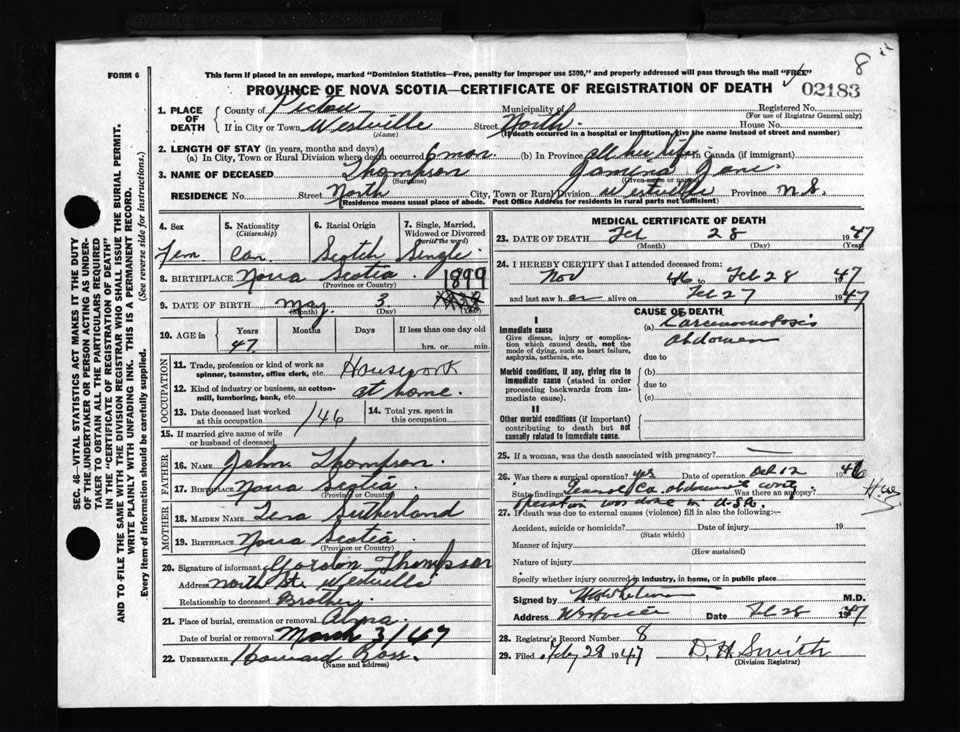 8
FORM 6
This form if placed in an envelope, marked "Dominion Statistics—Free, penalty for improper use $300," and properly addressed will pass through the mail "FREE"
PROVINCE OF NOVA SCOTIA—CERTIFICATE OF REGISTRATION OF DEATH
02183
1. PLACE OF DEATH
County of Pictou Municipality of Registered No.
(For use of Registrar General only)
If in City or Town Westville Street North House No.
(Name) (If death occurred in a hospital or institution, give the name instead of street and number)
2. LENGTH OF STAY (in years, months and days)
(a) In City, Town or Rural Division where death occurred 6 mon. (b) In Province all her life In Canada (if immigrant)
3. NAME OF DECEASED Thompson Jane
(Surname) (Given name or names)
RESIDENCE No. Street North City, Town or Rural Division Westville Province N.S.
(Residence means usual place of abode. Post Office Address for residents in rural parts not sufficient)
4. Sex Fem
5. Nationality (Citizenship) Can.
6. Racial Origin Scotch
7. Single, Married, Widowed or Divorced (write the word) Single
8. BIRTHPLACE Nova Scotia
(Province or Country)
9. DATE OF BIRTH May 3 1899
(Month) (Day) (Year)
10. AGE in Years Months Days If less than one day old
47. hrs. or min.
OCCUPATION
11. Trade, profession or kind of work as spinner, teamster, office clerk, etc. Housework
12. Kind of industry or business, as cotton-mill, lumbering, bank, etc. at home.
13. Date deceased last worked at this occupation /46
14. Total yrs. spent in this occupation
15. If married give name of wife or husband of deceased
FATHER
16. NAME John Thompson.
17. BIRTHPLACE Nova Scotia
(Province or Country)
MOTHER
18. MAIDEN NAME Sutherland
19. BIRTHPLACE Nova Scotia.
(Province or Country)
20. Signature of informant Gordon Thompson
Address North St. Westville
Relationship to deceased Brother
21. Place of burial, cremation or removal Alma.
Date of burial or removal March 3/47
22. UNDERTAKER Howard Ross.
(Name and address)
MEDICAL CERTIFICATE OF DEATH
23. DATE OF DEATH Feb 28 1947
(Month) (Day) (Year)
24. I HEREBY CERTIFY that I attended deceased from:
Nov 46 to Feb 28 1947
and last saw her alive on Feb 27 1947
CAUSE OF DEATH
I
Immediate cause
Give disease, injury or complication which caused death, not the mode of dying, such as heart failure, asphyxia, asthenia, etc.
(a) Carcinomatosis abdomen
due to
Morbid conditions, if any, giving rise to immediate cause (stated in order proceeding backwards from immediate cause).
(b)
due to
(c)
II
Other morbid conditions (if important) contributing to death but not causally related to immediate cause.
25. If a woman, was the death associated with pregnancy? —
26. Was there a surgical operation? yes Date of operation 12 1946
State findings Was there an autopsy?
operation was done in U.S.A.
27. If death was due to external causes (violence) fill in also the following:—
Accident, suicide or homicide? Date of injury 19
(State which)
Manner of injury
(How sustained)
Nature of injury
Specify whether injury occurred in industry, in home, or in public place
Signed by M.D.
Address Date Feb 28 1947
28. Registrar's Record Number 8
29. Filed Feby 28 1947 D. H. Smith
(Division Registrar)
SEC. 46—VITAL STATISTICS ACT MAKES IT THE DUTY
OF THE UNDERTAKER OR PERSON ACTING AS UNDERTAKER TO OBTAIN ALL THE PARTICULARS REQUIRED
IN THE "CERTIFICATE OF REGISTRATION OF DEATH"
AND TO FILE THE SAME WITH THE DIVISION REGISTRAR WHO SHALL ISSUE THE BURIAL PERMIT.
WRITE PLAINLY WITH UNFADING INK. THIS IS A PERMANENT RECORD.
Every item of information should be carefully supplied. (See reverse side for instructions.)